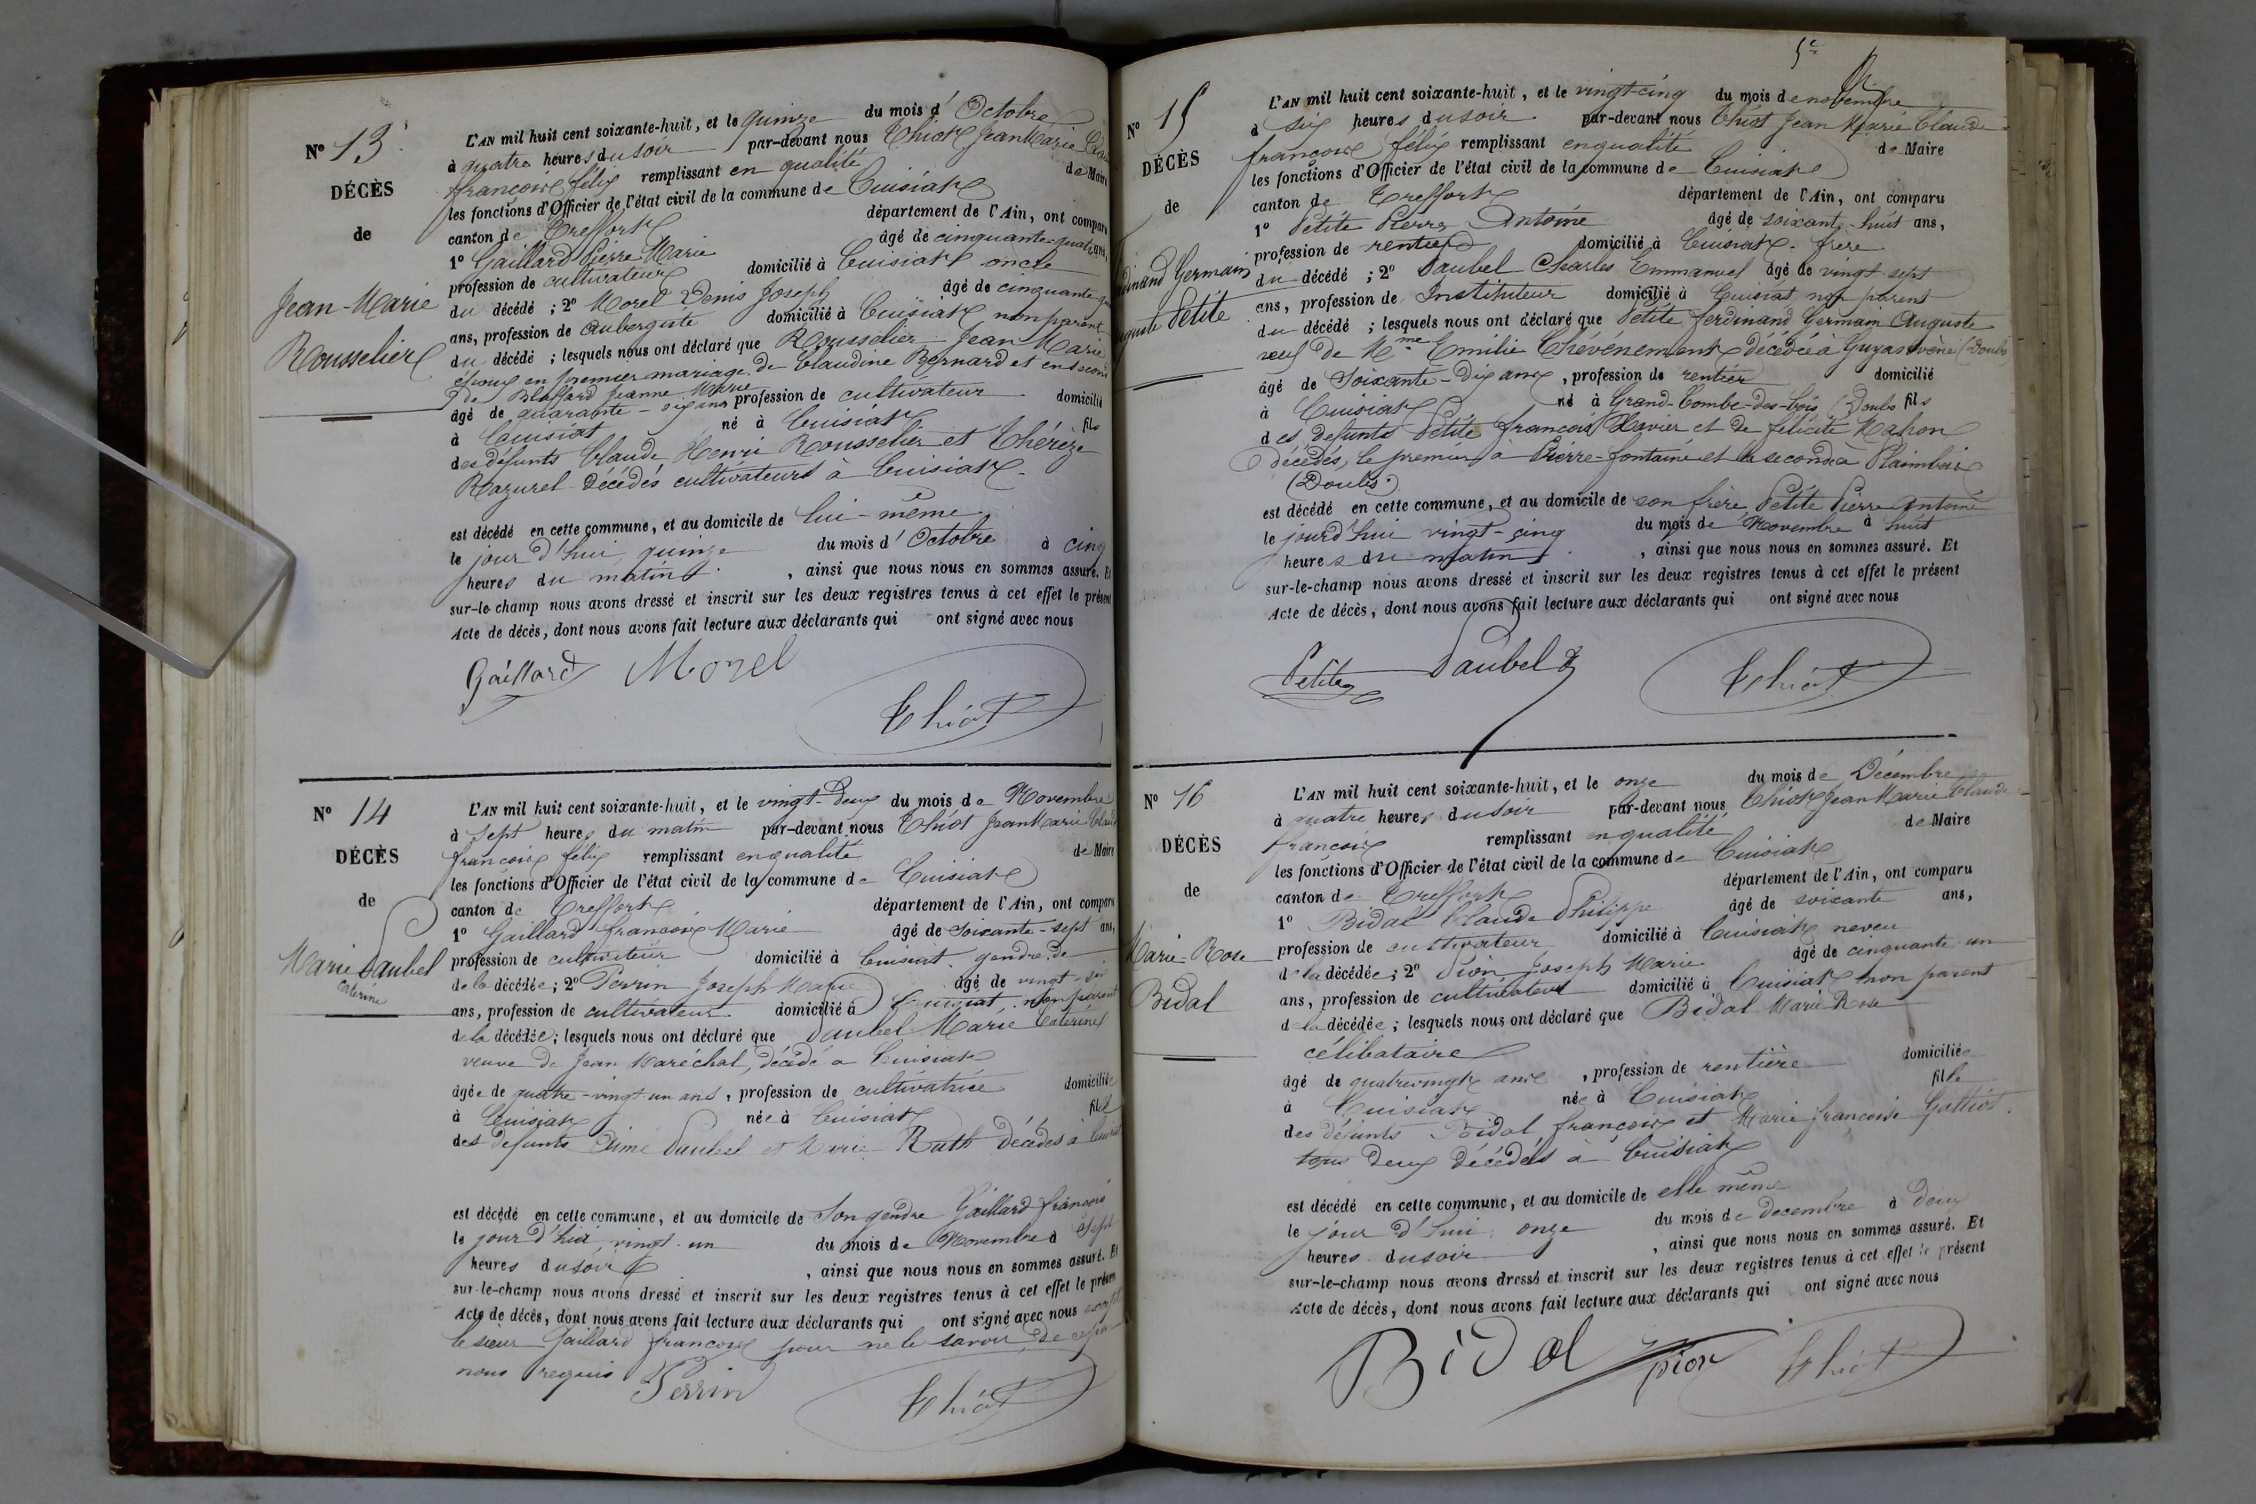 N° 13
DÉCÈS
de
Jean-Marie
Rousselier
L'AN mil huit cent soixante-huit, et le quinze du mois d'Octobre
à quatre heures du soir par-devant nous Thiot Jean Marie
françois félix remplissant en qualité de Maire
les fonctions d'Officier de l'état civil de la commune de Cuisiat
canton de Treffort département de l'Ain, ont comparu
1° Gaillard Pierre Marie âgé de cinquante-quatre ans,
profession de cultivateur domicilié à Cuisiat oncle
du décédé ; 2° Morel Denis Joseph âgé de cinquante
ans, profession de aubergiste domicilié à Cuisiat non parent
du décédé ; lesquels nous ont déclaré que Rousselier Jean Marie
époux en premier mariage de Claudine Bernard et en second
de Jeanne Marie
âgé de quarante-six ans profession de cultivateur domicilié
à Cuisiat né à Cuisiat fils
des défunts Claude Henri Rousselier et Thérèze
Razurel décédés cultivateurs à Cuisiat
est décédé en cette commune, et au domicile de lui-même
le jour d'hui quinze du mois d'Octobre à cinq
heures du matin , ainsi que nous nous en sommes assuré. Et
sur-le-champ nous avons dressé et inscrit sur les deux registres tenus à cet effet le présent
Acte de décès, dont nous avons fait lecture aux déclarants qui ont signé avec nous
Gaillard Morel
Thiot
N° 14
DÉCÈS
de
Marie Daubel
Caterine
L'AN mil huit cent soixante-huit, et le vingt-deux du mois de Novembre
à sept heures du matin par-devant nous Thiot Jean Marie Claude
françois félix remplissant en qualité de Maire
les fonctions d'Officier de l'état civil de la commune de Cuisiat
canton de Treffort département de l'Ain, ont comparu
1° Gaillard françois Marie âgé de soixante-sept ans,
profession de cultivateur domicilié à Cuisiat gendre de
de la décédée ; 2° Perrin Joseph Marie âgé de vingt-six
ans, profession de cultivateur domicilié à Cuisiat non parent
de la décédée ; lesquels nous ont déclaré que Daubel Marie Caterine
veuve de Jean Maréchal, décédé à Cuisiat
âgée de quatre-vingt-un ans, profession de cultivatrice domiciliée
à Cuisiat née à Cuisiat fille
des défunts Aimé Daubel et Marie Ruth décédés à Cuisiat
est décédé en cette commune, et au domicile de son gendre Gaillard françois
le jour d'hui vingt-un du mois de Novembre à sept
heures du soir , ainsi que nous nous en sommes assuré. Et
sur-le-champ nous avons dressé et inscrit sur les deux registres tenus à cet effet le présent
Acte de décès, dont nous avons fait lecture aux déclarants qui ont signé avec nous excepté
le sieur Gaillard françois pour ne le savoir de ce par
nous requis Perrin
Thiot
N° 15
DÉCÈS
de
Germain
Petite
L'AN mil huit cent soixante-huit, et le vingt-cinq du mois de novembre
à six heures du soir par-devant nous Thiot Jean Marie Claude
françois félix remplissant en qualité de Maire
les fonctions d'Officier de l'état civil de la commune de Cuisiat
canton de Treffort département de l'Ain, ont comparu
1° Petite Pierre Antoine âgé de soixant-huit ans,
profession de rentier domicilié à Cuisiat frère
du décédé ; 2° Daubel Charles Emmanuel âgé de vingt-sept
ans, profession de Instituteur domicilié à Cuisiat non parent
du décédé ; lesquels nous ont déclaré que Petite ferdinand Germain Auguste
veuf de Mme Emilie Chévenement décédée à Guyans-Vènes (Doubs)
âgé de Soixante-Dix ans, profession de rentier domicilié
à Cuisiat né à Grand-Combe-des-bois (Doubs) fils
des défunts Petite françois Xavier et de félicité Mahon
décédés, le premier à Pierre-fontaine et la seconde à Plaimbois
(Doubs)
est décédé en cette commune, et au domicile de son frère Petite Pierre Antoine
le jourd'hui vingt-cinq du mois de Novembre à huit
heures du matin , ainsi que nous nous en sommes assuré. Et
sur-le-champ nous avons dressé et inscrit sur les deux registres tenus à cet effet le présent
Acte de décès, dont nous avons fait lecture aux déclarants qui ont signé avec nous
Petite Daubel Thiot
N° 16
DÉCÈS
de
Marie-Rose
Bidal
L'AN mil huit cent soixante-huit, et le onze du mois de Décembre
à quatre heures du soir par-devant nous Thiot Jean Marie Claude
françois remplissant en qualité de Maire
les fonctions d'Officier de l'état civil de la commune de Cuisiat
canton de Treffort département de l'Ain, ont comparu
1° Bidal Claude Philippe âgé de soixante ans,
profession de cultivateur domicilié à Cuisiat neveu
de la décédée ; 2° Pion Joseph Marie âgé de cinquante-un
ans, profession de cultivateur domicilié à Cuisiat non parent
de la décédée ; lesquels nous ont déclaré que Bidal Marie Rose
célibataire
âgé de quatrevingt ans, profession de rentière domiciliée
à Cuisiat née à Cuisiat fille
des défunts Bidal françois et Marie françoise
tous deux décédés à Cuisiat
est décédé en cette commune, et au domicile de elle même
le jour d'hui onze du mois de decembre à deux
heures du soir , ainsi que nous nous en sommes assuré. Et
sur-le-champ nous avons dressé et inscrit sur les deux registres tenus à cet effet le présent
Acte de décès, dont nous avons fait lecture aux déclarants qui ont signé avec nous
Bidal pion Thiot